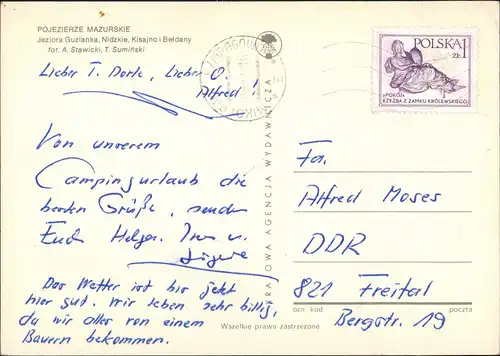 POJEZIERZE MAZURSKIE
Jeziora Guzianka, Nidzkie, Kisajno i Bełdany
fot. A. Stawicki, T. Sumiński
Lieber T. Dorle, Lieber O.
Alfred!
Von unserem
Campingurlaub die
besten Grüße, senden
Euch Helga. Ines u.
Das Wetter ist bis jetzt
hier gut. Wir leben sehr billig,
da wir alles von einem
Bauern bekommen.
KRAJOWA AGENCJA WYDAWNICZA
Wszelkie prawa zastrzeżone
POLSKA 1
ZŁ
»POKÓJ«
RZEŹBA Z ZAMKU KRÓLEWSKIEGO
Fa.
Alfred Moses
DDR
821 Freital
ozn. kod
poczta
Bergstr. 19